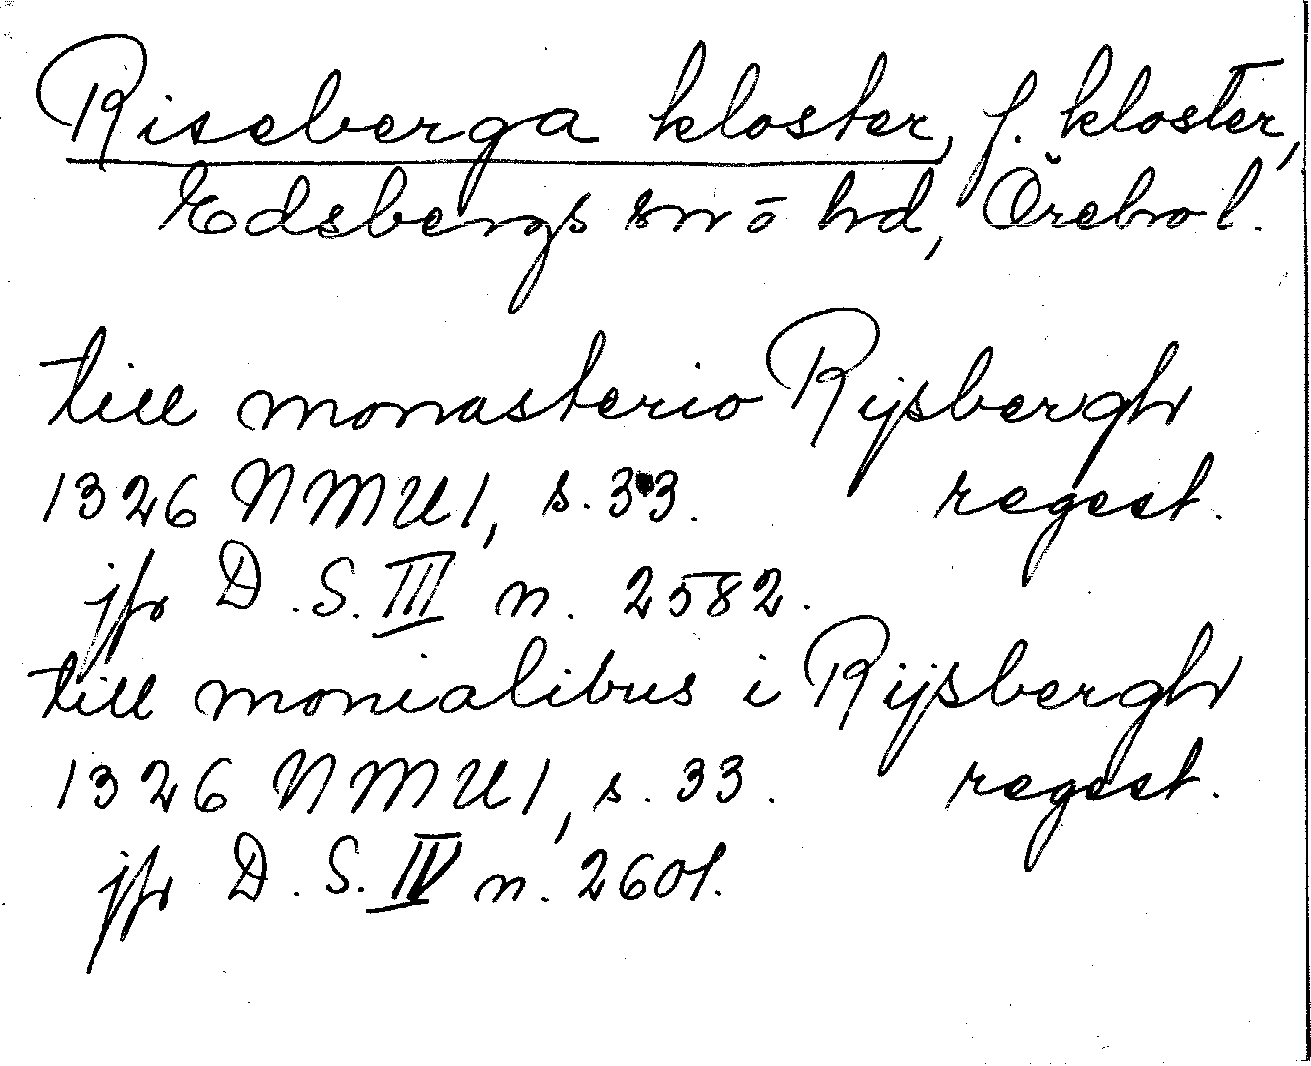 Riseberga kloster, f. kloster,
Edsbergs sn o hd, Örebro l.
till monasterio Rijsbergh
1326 NMU1, s. 33. regest.
jfr D. S. III n. 2582.
till monialibus i Rijsbergh
1326 NMU1, s. 33. regest.
jfr D. S. IV n. 2601.